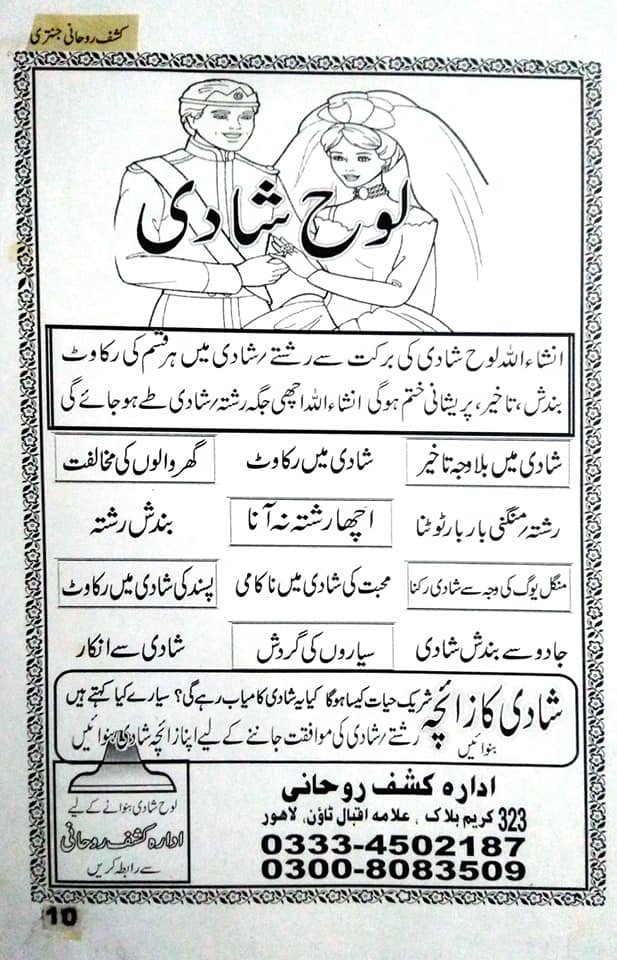 کشف روحانی جنتری
لوح شادی
انشاء اللہ لوح شادی کی برکت سے رشتے/شادی میں ہر قسم کی رکاوٹ
بندش، تاخیر، پریشانی ختم ہوگی انشاء اللہ اچھی جگہ رشتہ/شادی طے ہو جائے گی
شادی میں بلا وجہ تاخیر
شادی میں رکاوٹ
گھر والوں کی مخالفت
رشتہ/منگنی بار بار ٹوٹنا
اچھا رشتہ نہ آنا
بندش رشتہ
منگل یوگ کی وجہ سے شادی رکنا
محبت کی شادی میں ناکامی
پسند کی شادی میں رکاوٹ
جادو سے بندش شادی
سیاروں کی گردش
شادی سے انکار
شادی کا زائچہ بنوائیں
شریک حیات کیسا ہوگا کیا یہ شادی کامیاب رہے گی؟ سیارے کیا کہتے ہیں
رشتے/شادی کی موافقت جاننے کے لیے اپنا زائچہ شادی بنوائیں
لوح شادی بنوانے کے لیے
ادارہ کشف روحانی
سے رابطہ کریں
ادارہ کشف روحانی
323 کریم بلاک ، علامہ اقبال ٹاؤن، لاهور
0333-4502187
0300-8083509
10